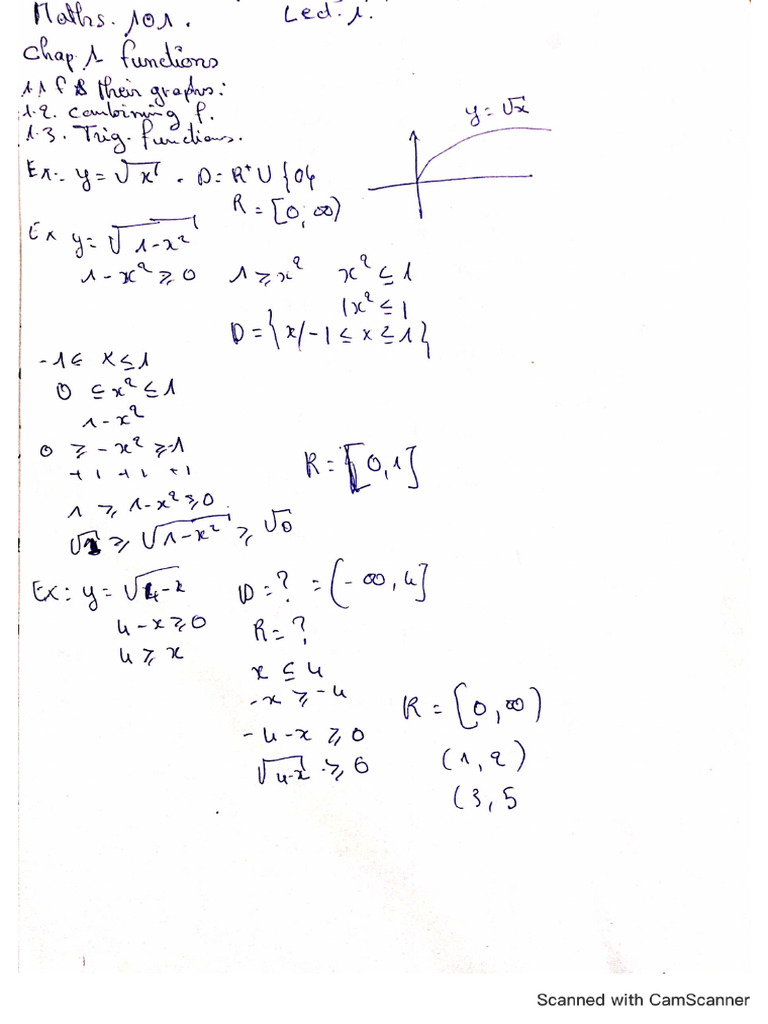 Maths. 101. Lec. 1.
Chap 1 functions
1.1 f & their graphs:
1.2. combining f.
1.3. Trig. functions.
y = √x
Ex:- y = √x . D = R⁺ ∪ {0}
R = [0, ∞)
Ex y = √1-x²
1-x² ≥ 0 1 ≥ x² x² ≤ 1
|x² ≤ 1
D = {x/-1 ≤ x ≤ 1}
-1 ≤ x ≤ 1
0 ≤ x² ≤ 1
1-x²
0 ≥ -x² ≥ -1
+1 +1 +1
R = [0, 1]
1 ≥ 1-x² ≥ 0
√1 ≥ √1-x² ≥ √0
Ex: y = √4-x D = ? = (-∞, 4]
4-x ≥ 0 R = ?
4 ≥ x
x ≤ 4
-x ≥ -4
R = [0, ∞)
-4-x ≥ 0
(1, 2)
√4-x ≥ 0
(3, 5
Scanned with CamScanner